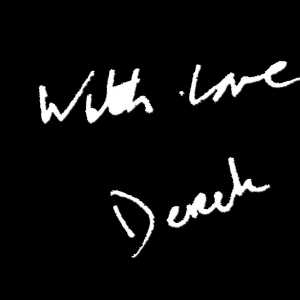 With love
Derek